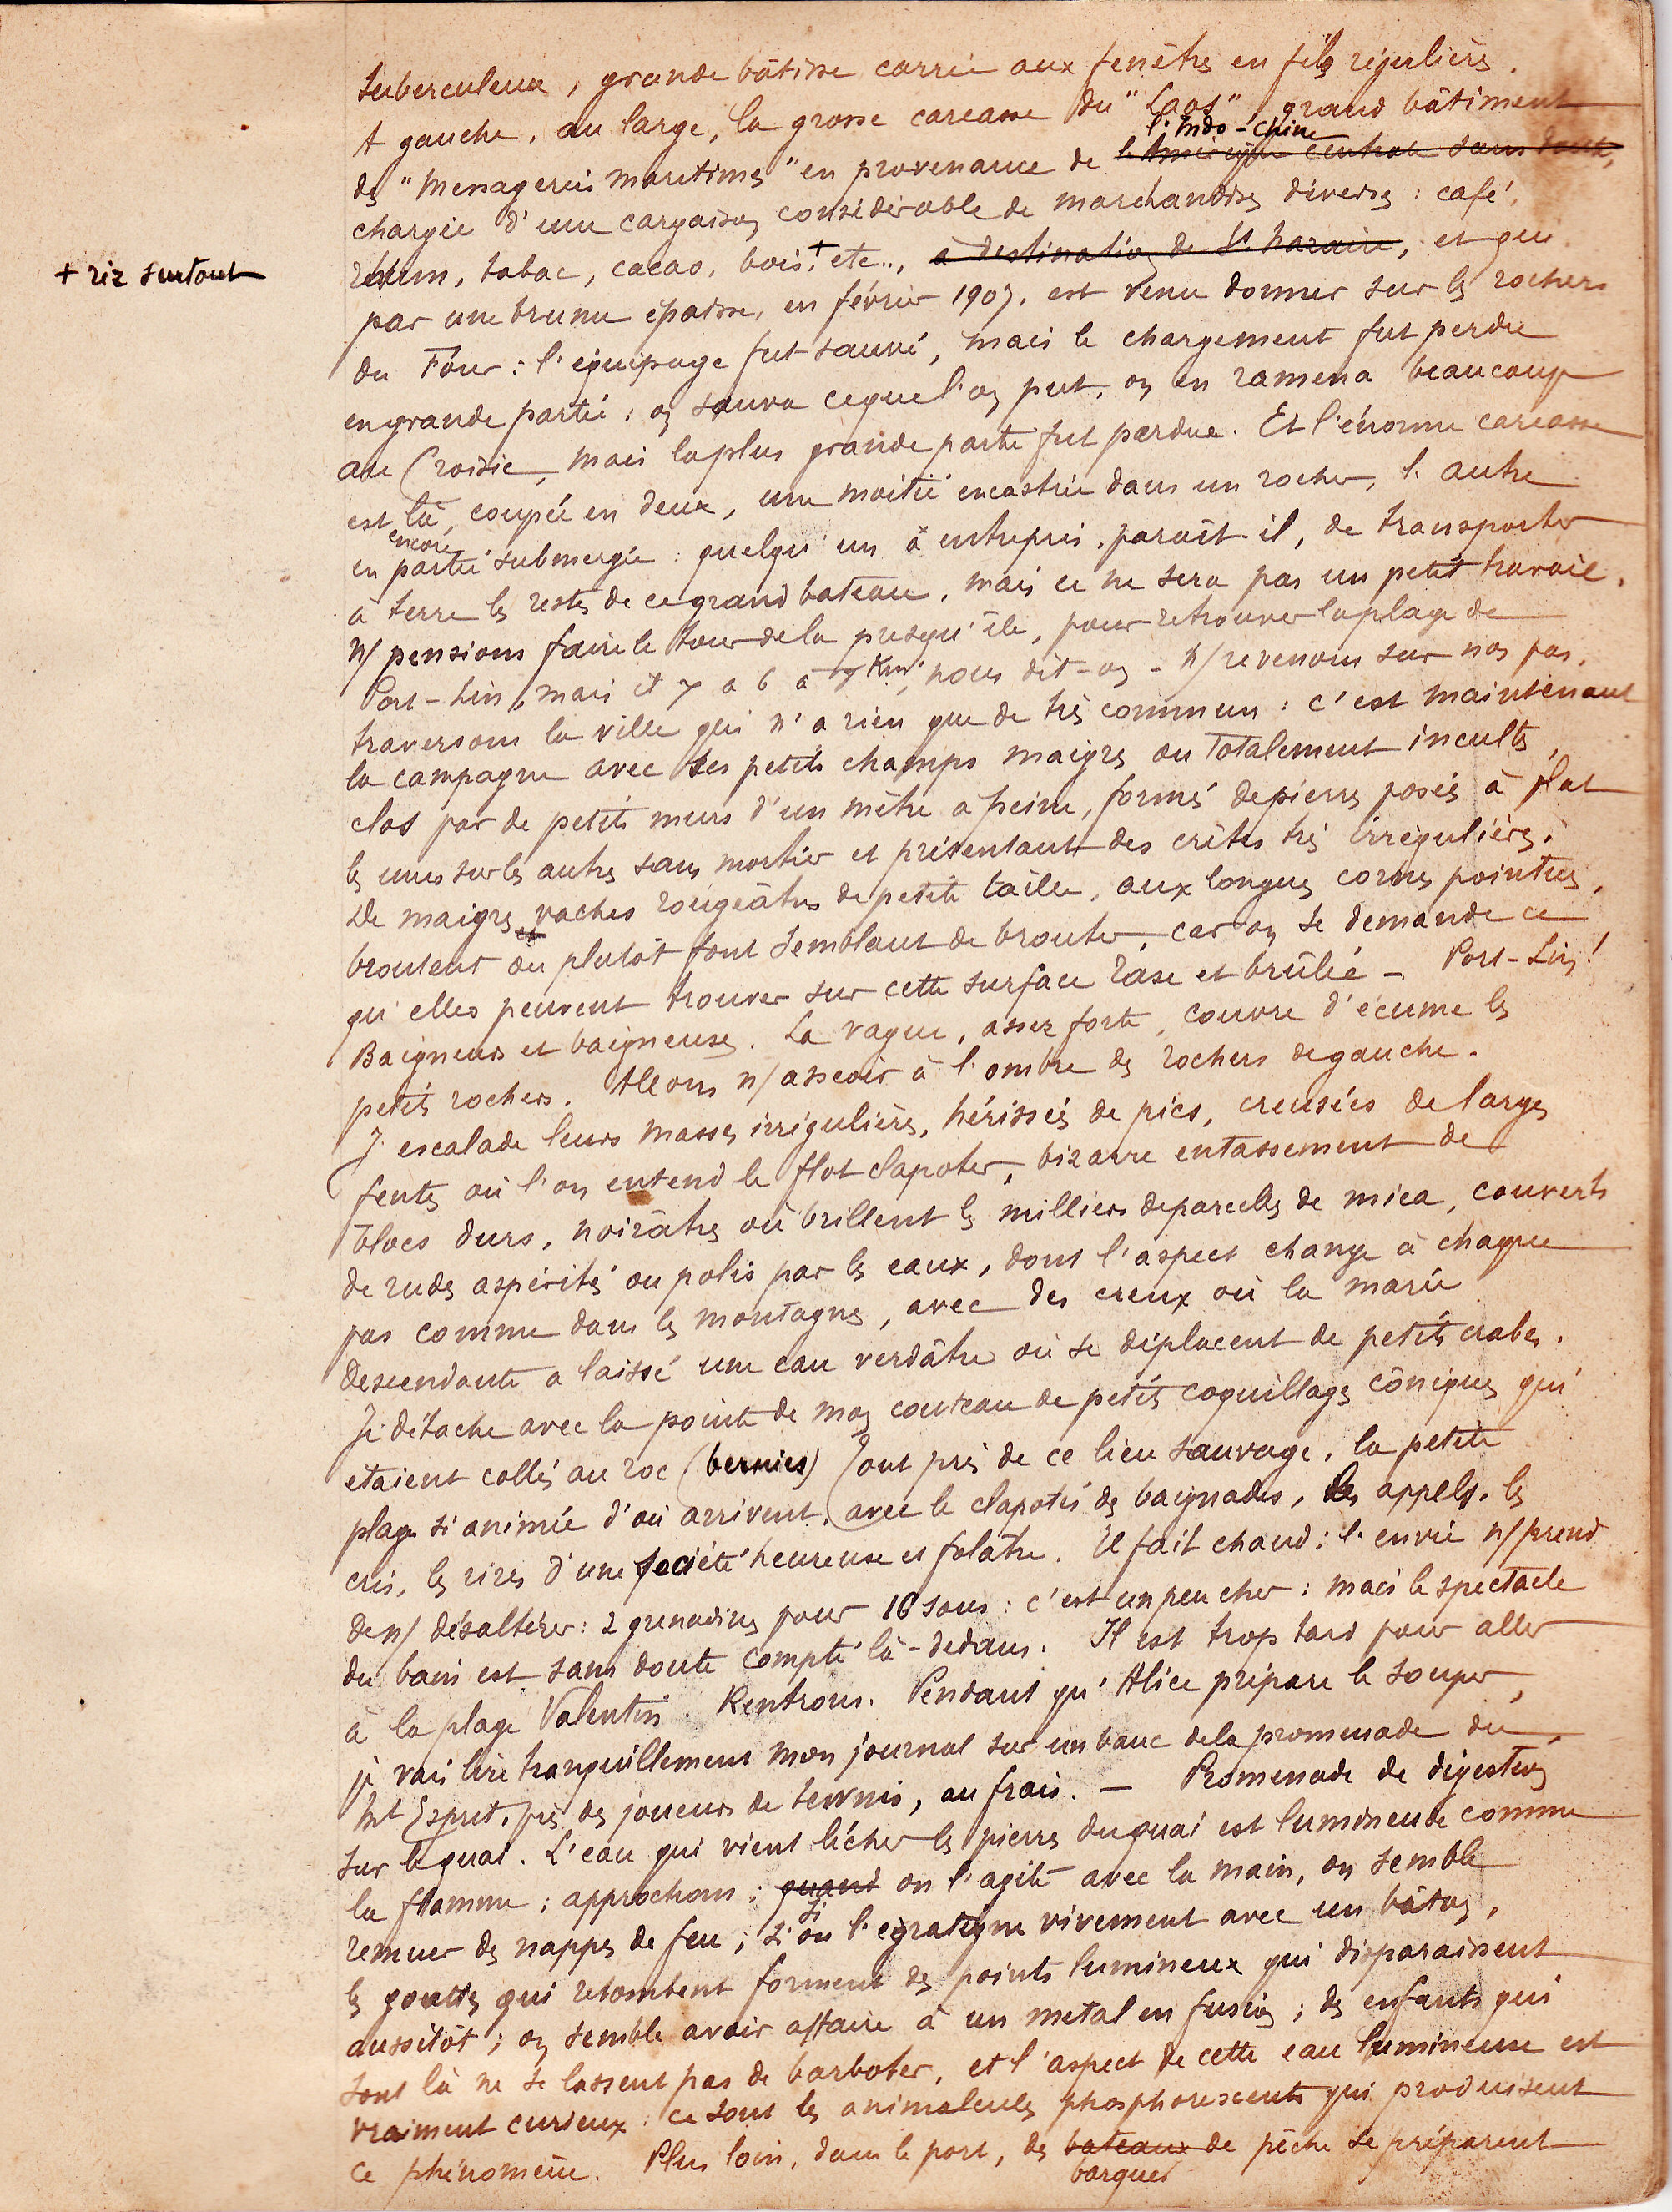 tuberculeux, grande bâtisse carrée aux fenêtres en fils régulières.
A gauche, au large, la grosse carcasse du "Laos", grand bâtiment
des "Messageries maritimes" en provenance de l'Indo-Chine l'Amérique centrale sans doute,
chargée d'une cargaison considérable de marchandises diverses : café,
rhum, tabac, cacao, bois,+ etc.., à destination de St Nazaire, et qui
+ riz surtout
par une brume épaisse, en février 1907, est venu donner sur les rochers
du Four : l'équipage fut sauvé, mais le chargement fut perdu
en grande partie : on sauva ce que l'on put, on en ramena beaucoup
au Croisic, mais la plus grande partie fut perdue. Et l'énorme carcasse
est là, coupée en deux, une moitié encastrée dans un rocher, l'autre
encore
en partie submergée : quelqu'un a entrepris, paraît-il, de transporter
à terre les restes de ce grand bateau, mais ce ne sera pas un petit travail.
N/ pensions faire le tour de la presqu'île, pour retrouver la plage de
Port-Lin, mais il y a 6 à 7 Km, nous dit-on - N/ revenons sur nos pas,
traversons la ville qui n'a rien que de très commun : c'est maintenant
la campagne avec ses petits champs maigres ou totalement incultes,
clos par de petits murs d'un mètre à peine, formés de pierres posées à plat
les unes sur les autres sans mortier et présentant des crêtes très irrégulières.
De maigres vaches rougeâtres de petite taille, aux longues cornes pointues,
broutent ou plutôt font semblant de brouter, car on se demande ce
qu'elles peuvent trouver sur cette surface rase et brûlée - Port-Lin !
Baigneurs et baigneuses. La vague, assez forte, couvre d'écume les
petits rochers. Allons n/ asseoir à l'ombre des rochers de gauche.
J'escalade leurs masses irrégulières, hérissées de pics, creusées de larges
fentes où l'on entend le flot clapoter, bizarre entassement de
blocs durs, noirâtres où brillent les milliers de parcelles de mica, couverts
de rudes aspérités ou polis par les eaux, dont l'aspect change à chaque
pas comme dans les montagnes, avec des creux où la marée
descendante a laissé une eau verdâtre où se déplacent de petits crabes.
Je détache avec la pointe de mon couteau de petits coquillages côniques qui
étaient collés au roc (bernies) Tout près de ce lieu sauvage, la petite
plage si animée d'où arrivent, avec le clapotis des baignades, les appels, les
cris, les rires d'une société heureuse et folâtre. Il fait chaud : l'envie n/ prend
de n/ désaltérer : 2 grenadines pour 16 sous : c'est un peu cher : mais le spectacle
du bain est sans doute compté là-dedans. Il est trop tard pour aller
à la plage Valentin. Rentrons. Pendant qu'Alice prépare le souper,
je vais lire tranquillement mon journal sur un banc de la promenade du
Mt Esprit, près des joueurs de tennis, au frais. - Promenade de digestion
sur le quai. L'eau qui vient lécher les pierres du quai est lumineuse comme
la flamme ; approchons ; quand si on l'agite avec la main, on semble
remuer des nappes de feu ; si on l'égratigne vivement avec un bâton,
les gouttes qui retombent forment des points lumineux qui disparaissent
aussitôt ; on semble avoir affaire à un métal en fusion ; des enfants qui
sont là ne se lassent pas de barboter, et l'aspect de cette eau lumineuse est
vraiment curieux : ce sont les animalcules phosphorescents qui produisent
ce phénomène. Plus loin, dans le port, des bateaux de pêche se préparent
barques